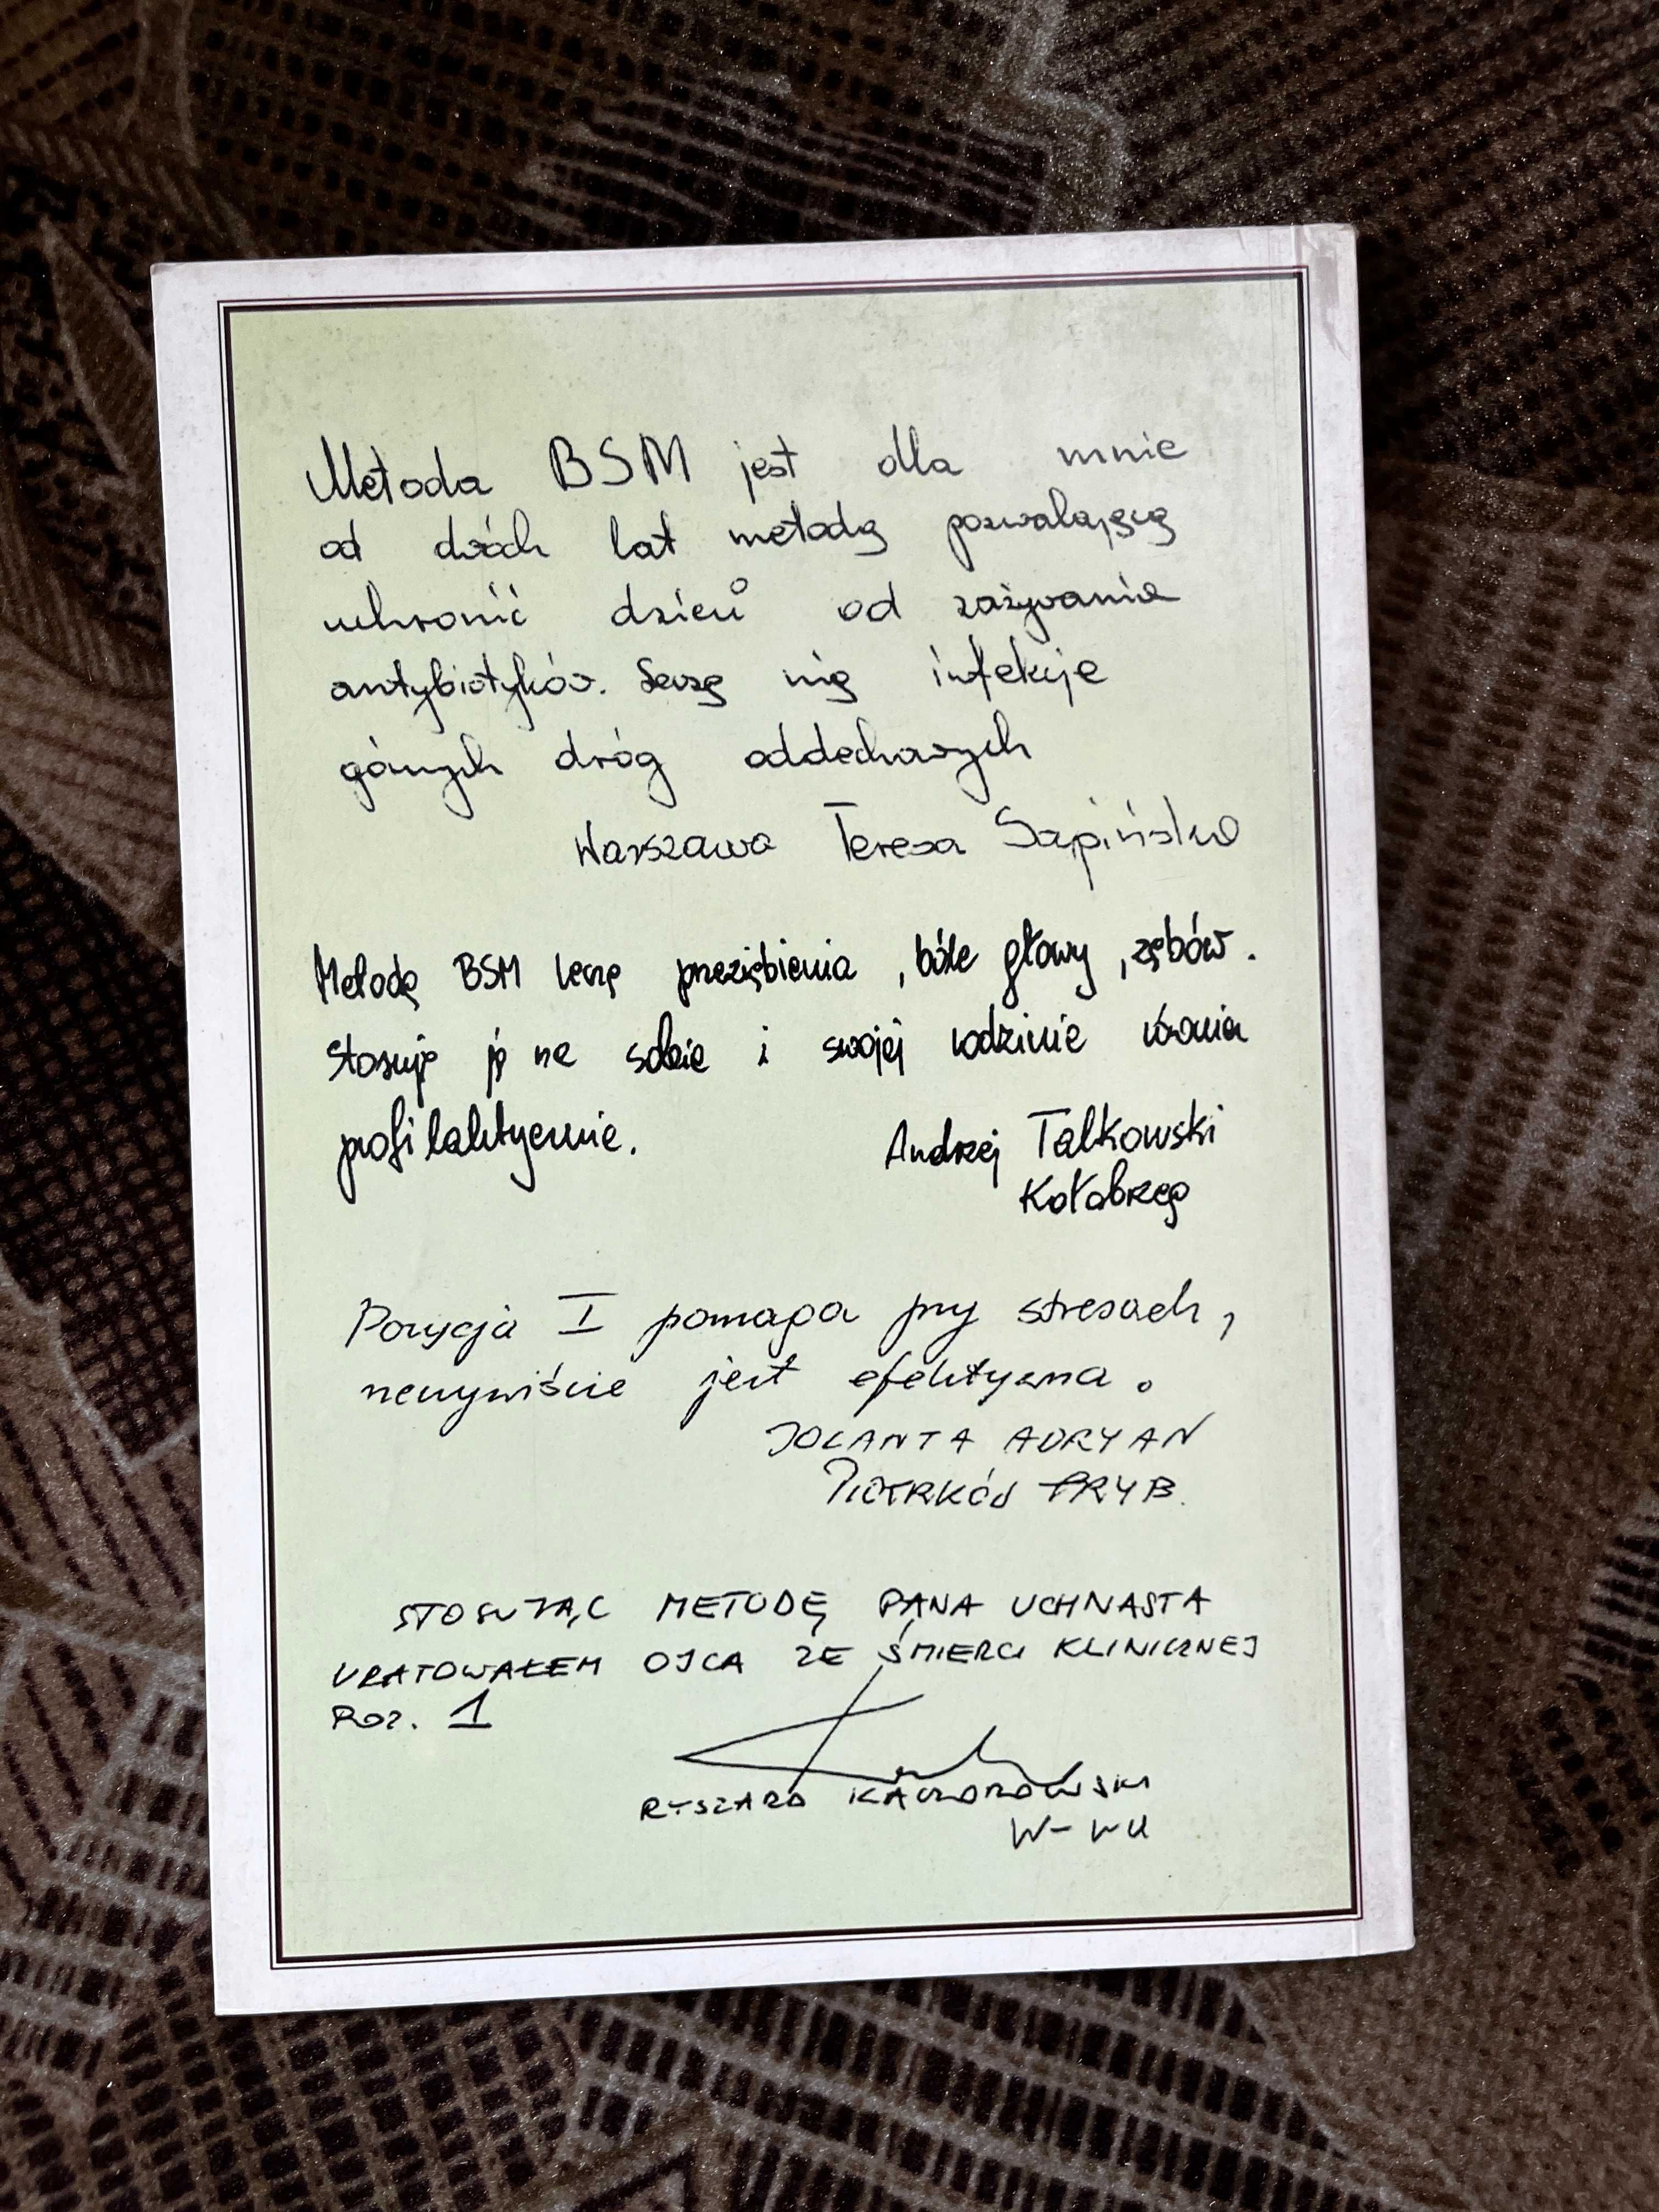 Metoda BSM jest dla mnie
od dwóch lat metodą pozwalającą
uchronić dzieci od zażywania
antybiotyków. Leczę nią infekcje
górnych dróg oddechowych
Warszawa Teresa Sapińska
Metodą BSM leczę przeziębienia, bóle głowy, zębów.
Stosuję ją na sobie i swojej rodzinie również
profilaktycznie.
Andrzej Talkowski
Kołobrzeg
Pozycja I pomaga przy stresach,
rzeczywiście jest efektywna.
JOLANTA ADRYAN
PIOTRKÓW TRYB.
STOSUJĄC METODĘ PANA UCHNASTA
URATOWAŁEM OJCA ZE ŚMIERCI KLINICZNEJ
POZ. 1
RYSZARD KACZOROWSKI
W-WA